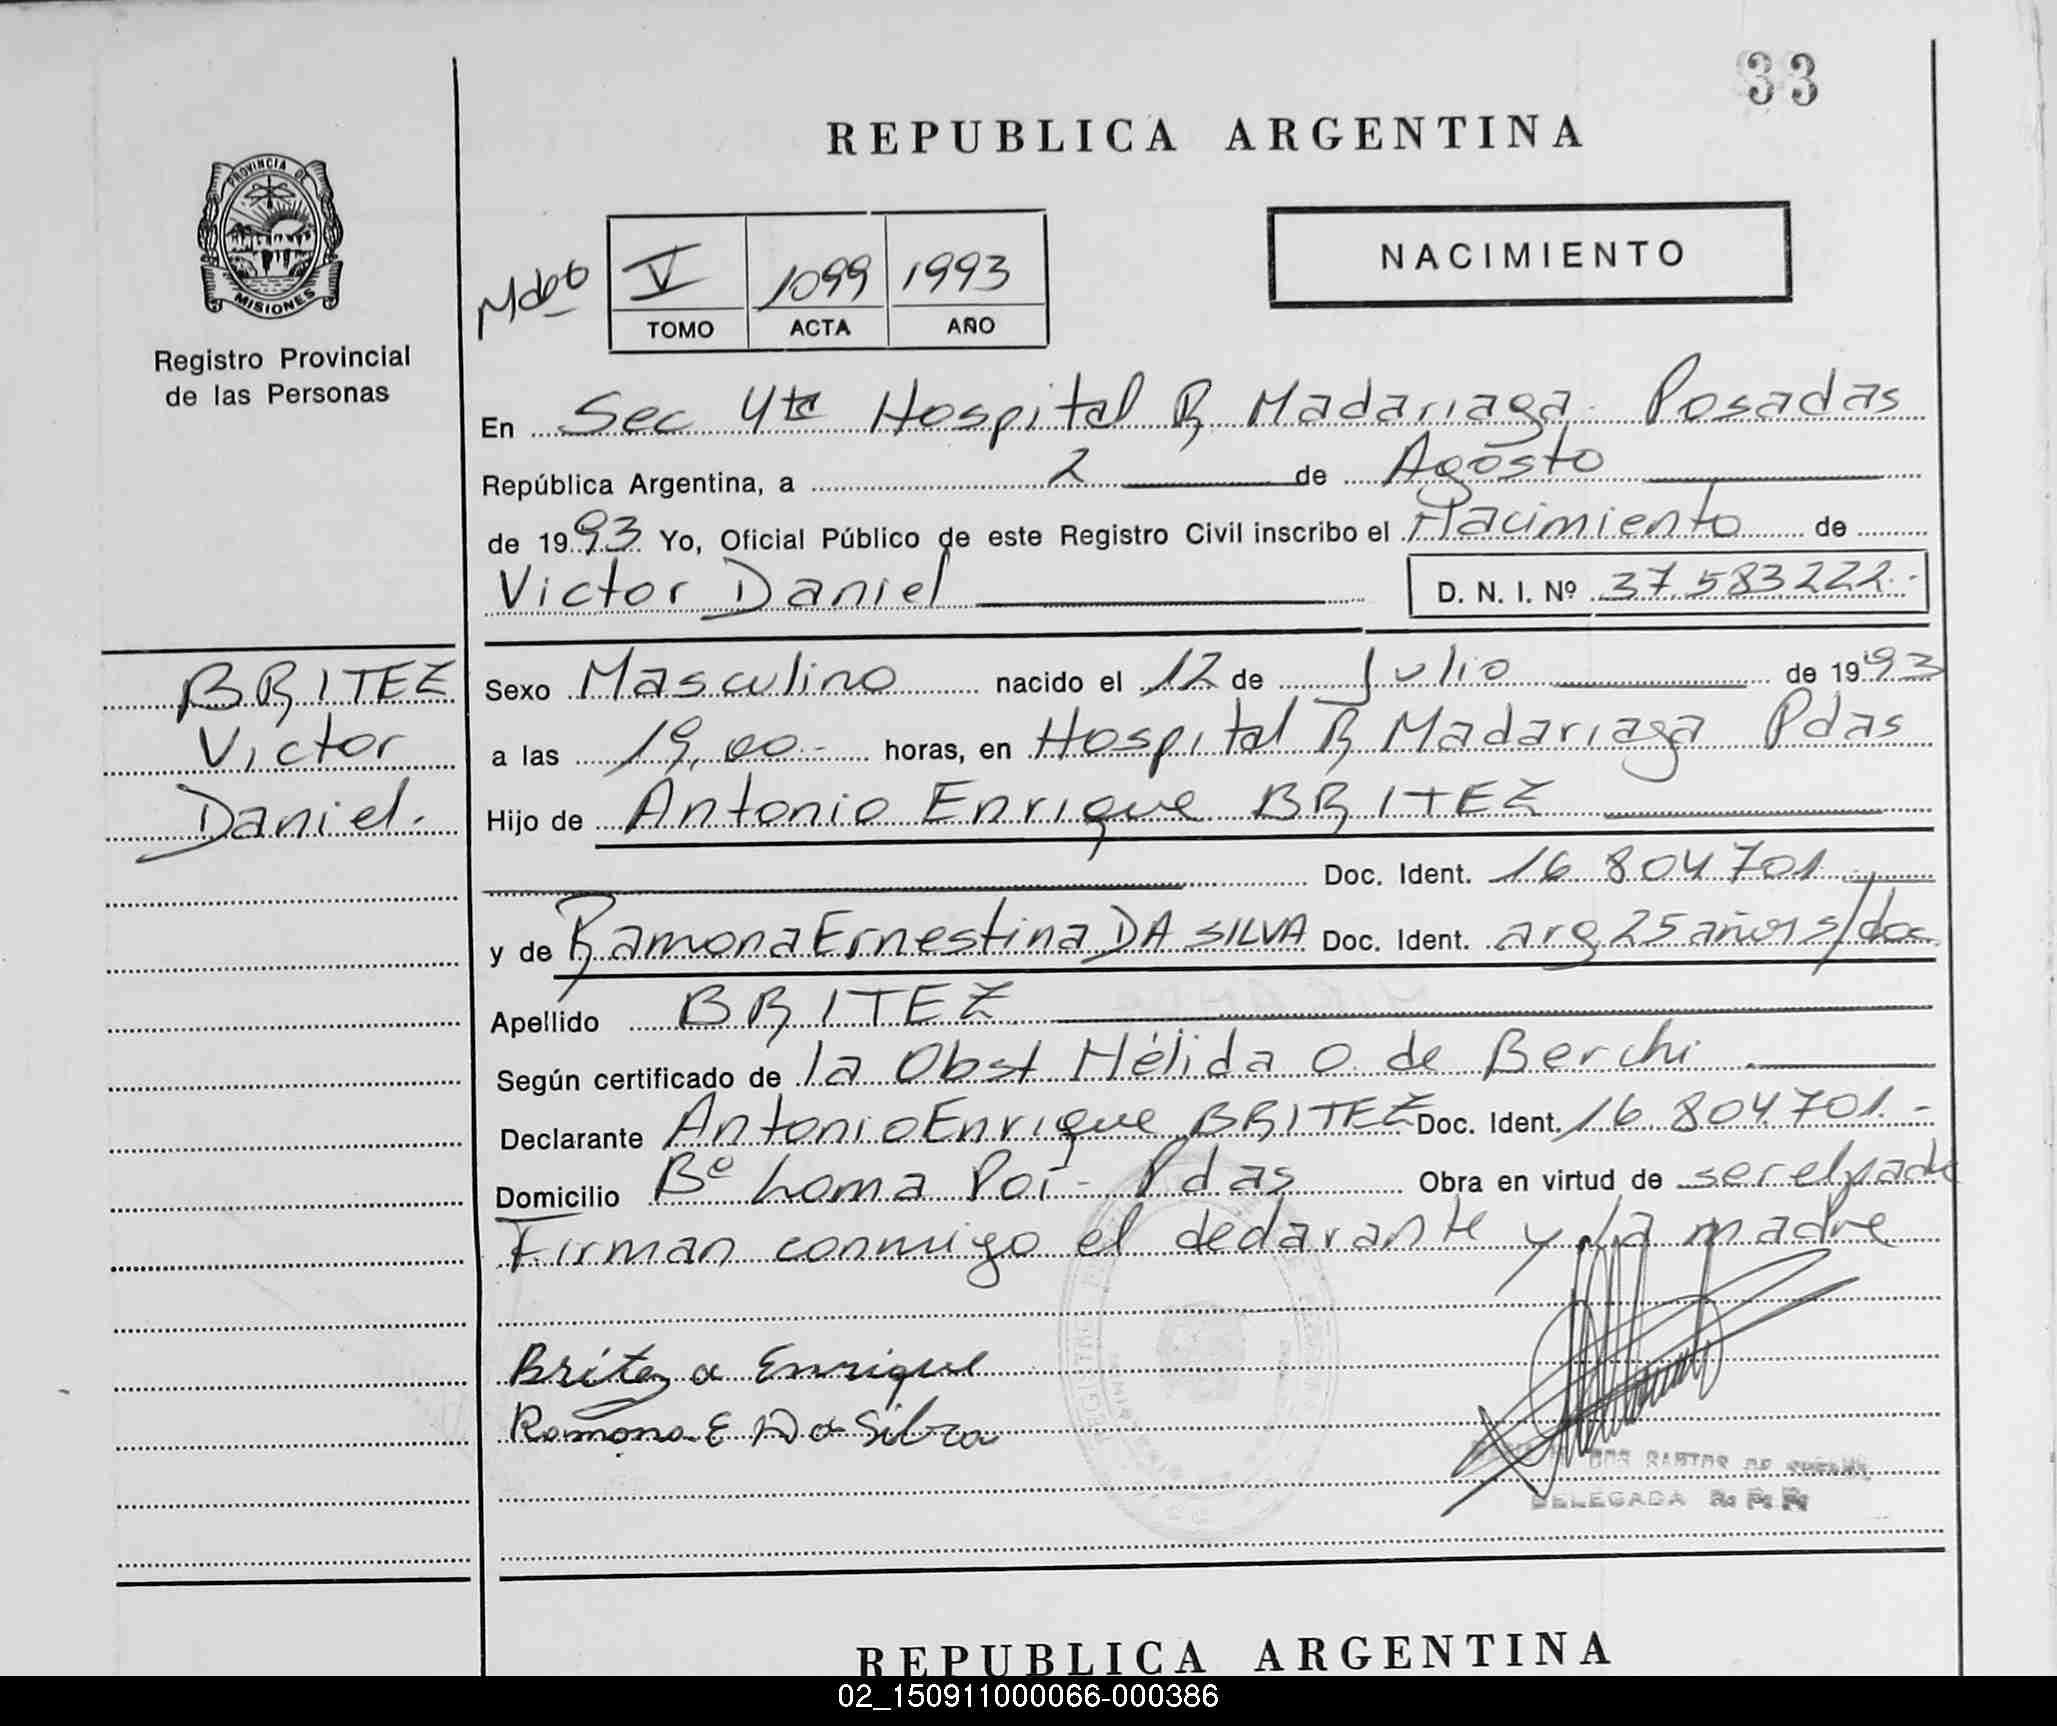 33
REPUBLICA ARGENTINA
PROVINCIA DE
MISIONES
Registro Provincial
de las Personas
NACIMIENTO
V 1099 1993
TOMO ACTA AÑO
En Sec 4ta Hospital R Madariaga Posadas
República Argentina, a 2 de Agosto
de 1993 Yo, Oficial Público de este Registro Civil inscribo el Nacimiento de
Victor Daniel D. N. I. Nº 37.583222.-
BRITEZ
Victor
Daniel.
Sexo Masculino nacido el 12 de Julio de 1993
a las 19,00.- horas, en Hospital R Madariaga Pdas
Hijo de Antonio Enrique BRITEZ
Doc. Ident. 16 804 701
y de Ramona Ernestina DA SILVA Doc. Ident. arg 25 años s/doc
Apellido BRITEZ
Según certificado de la Obst Hélida O. de Berchi
Declarante Antonio Enrique BRITEZ Doc. Ident. 16 804.701.-
Domicilio Bº Loma Poi - Pdas Obra en virtud de ser el padre
Firman conmigo el declarante y la madre
Britez a Enrique
Ramona E Da Silva
DOS SANTOS DE
DELEGADA R. P. P.
REPUBLICA ARGENTINA
02_150911000066-000386